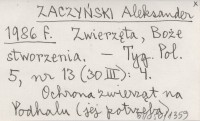 ZACZYŃSKI Aleksander
1986 f. Zwierzęta, Boże
stworzenia. — Tyg. Pol.
5, nr 13 (30 III): 4.
Ochrona zwierząt na
Podhalu (jej potrzeba)